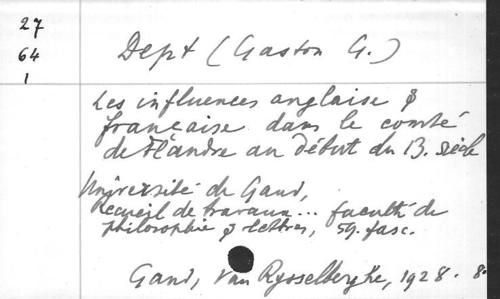 27
64
1
Dept (Gaston G.)
Les influences anglaise &
française dans le comté
de Flandre au début du 13. siècle
Université de Gand,
Recueil de travaux... faculté de
philosophie & lettres, 59. fasc.
Gand, Van Rysselberghe, 1928. 8.